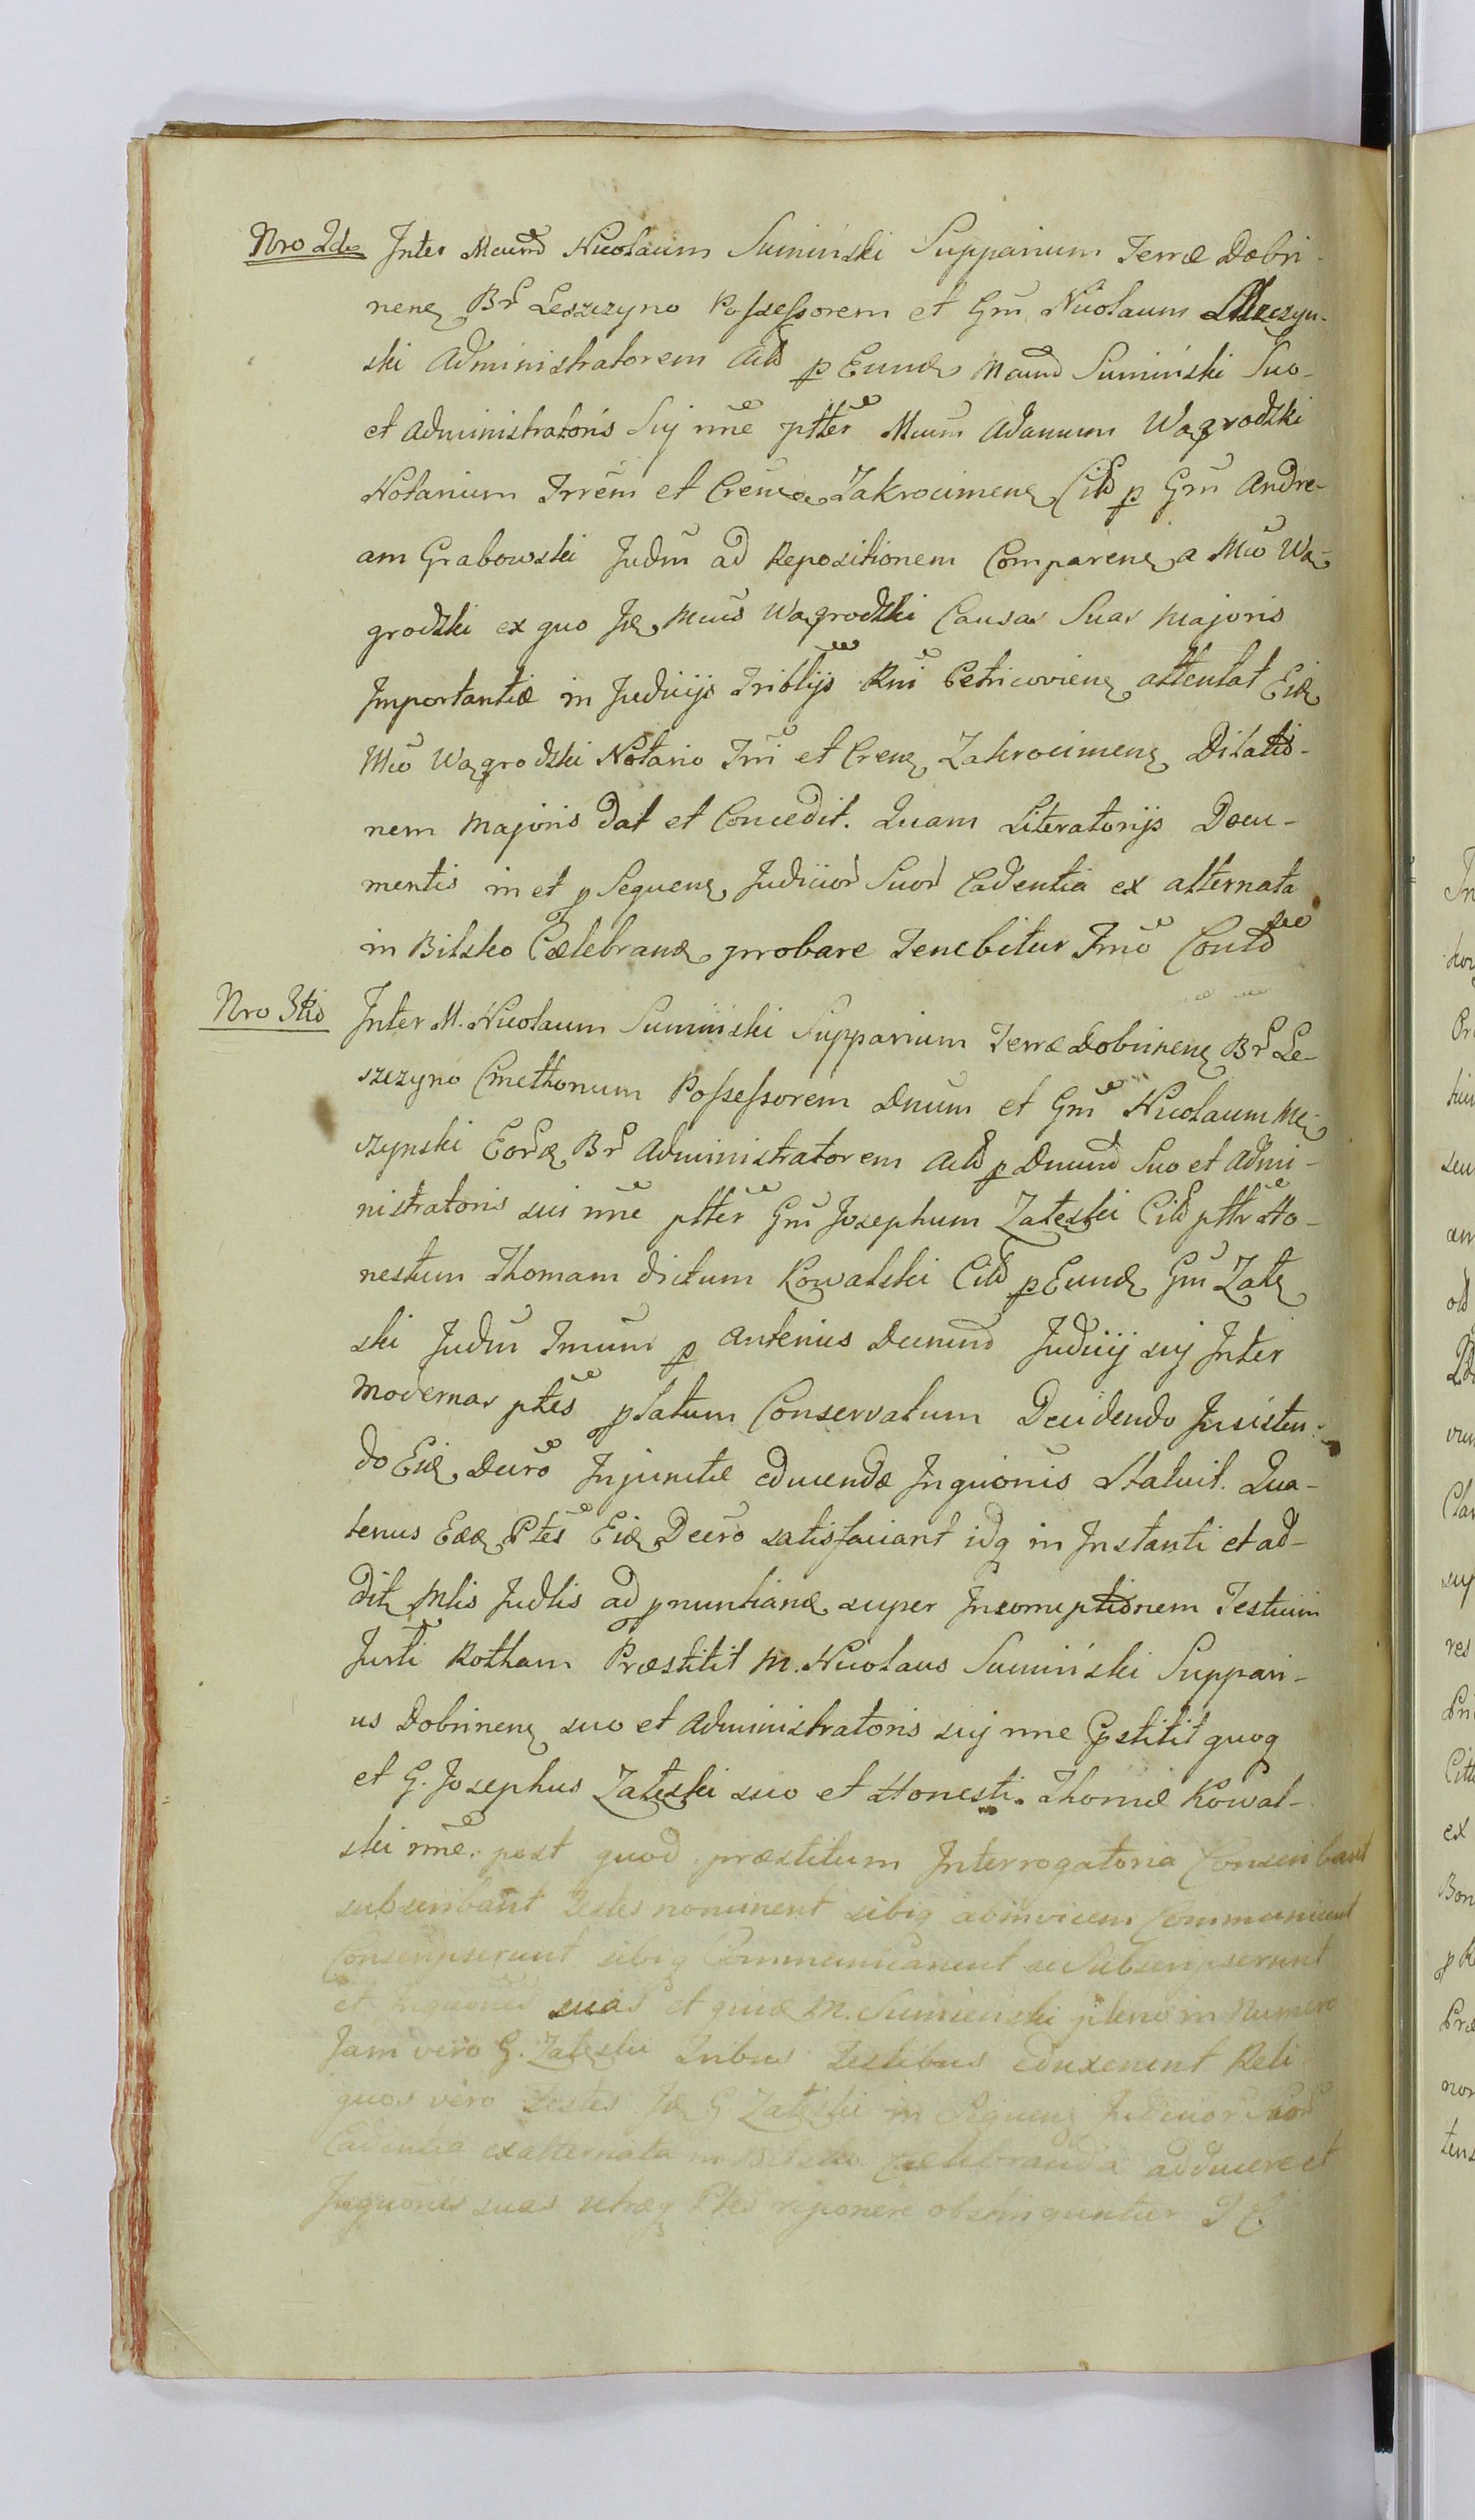 Nro 2do Inter Mcum Nicolaum Sumiński Supparium Terræ Dobri-
nens Br Leszczyno Possessorem et Gm Nicolaum
ski Administratorem Actd p Eund Mcum Sumiński Suo-
et Administratoris Suj nne ptter Mcum Adamum Wągrodzki
Notarium Trrem et Crem Zakrocimens Citd p Gm Andre-
am Grabowski Judm ad Repositionem Comparens a Mco Wą-
grodzki ex quo Id Mcus Wągrodzki Causas Suas Majoris
Importantiæ in Judicijs Triblijs Rni Petricoviens attentat Eid
Mco Wągrodzki Notario Trri et Crens Zakrocimens Dilatio-
nem Majoris dat et Concedit. Quam Literatorijs Docu-
mentis in et p Sequens Judicior Suor Cadentia ex alternata
in Bilsko Cælebrand probare Tenebitur Tmo
Nro 3tio Inter M. Nicolaum Sumiński Supparium Terræ Dobrinens Br Le-
szczyno Cmethonum Possessorem Dnum et Gm Nicolaum Mę-
czynski Eord Br Administratorem Actd p Dnum Suo et Admi-
nistratoris sui nne ptter Gm Josephum Zaleski Citd ptter Ho-
nestum Thomam dictum Kowalski Citd p Eund Gm Zale
ski Judm Tmum p Anterius Decrum Judicij suj Inter
Modernas ptes platum Conservatum Decidendo Insisten-
do Eid Decro Injunctæ educendæ Inquionis Statuit. Qua-
tenus Eæd Ptes Eid Decro satisfaciant idq in Instanti et ad-
dit Mlis Judlis ad pnuntiand super Incorruptionem Testium
Jurti Rotham Præstitit M. Nicolaus Sumiński Suppari-
us Dobrinens suo et Administratoris suj nne Pstitit quoq
et G. Josephus Zaleski suo et Honesti Thomæ Kowal-
ski nne. post quod præstitum Interrogatoria Conscribant
subscribant testes nominent sibiq abinvicem Communicent
Conscripserunt sibiq Communicarunt ac Subscripserunt
et Inquones suas et quid M. Sumienski pleno in Numero
Jam vero G. Zaleski Tribus Testibus eduxerunt Reli
quos vero testes Id G Zaleski in Sequens Judicior Suor
Cadentia ex alternata in Bilsko cælebranda adducere et
Inquones suas utræq Ptes reponere obstringuntur